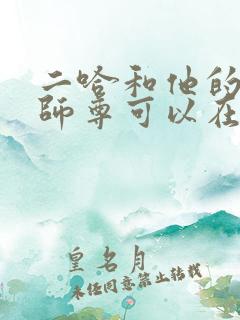 二哈和他的
師尊可以在
皇名月
未经同意禁止转载